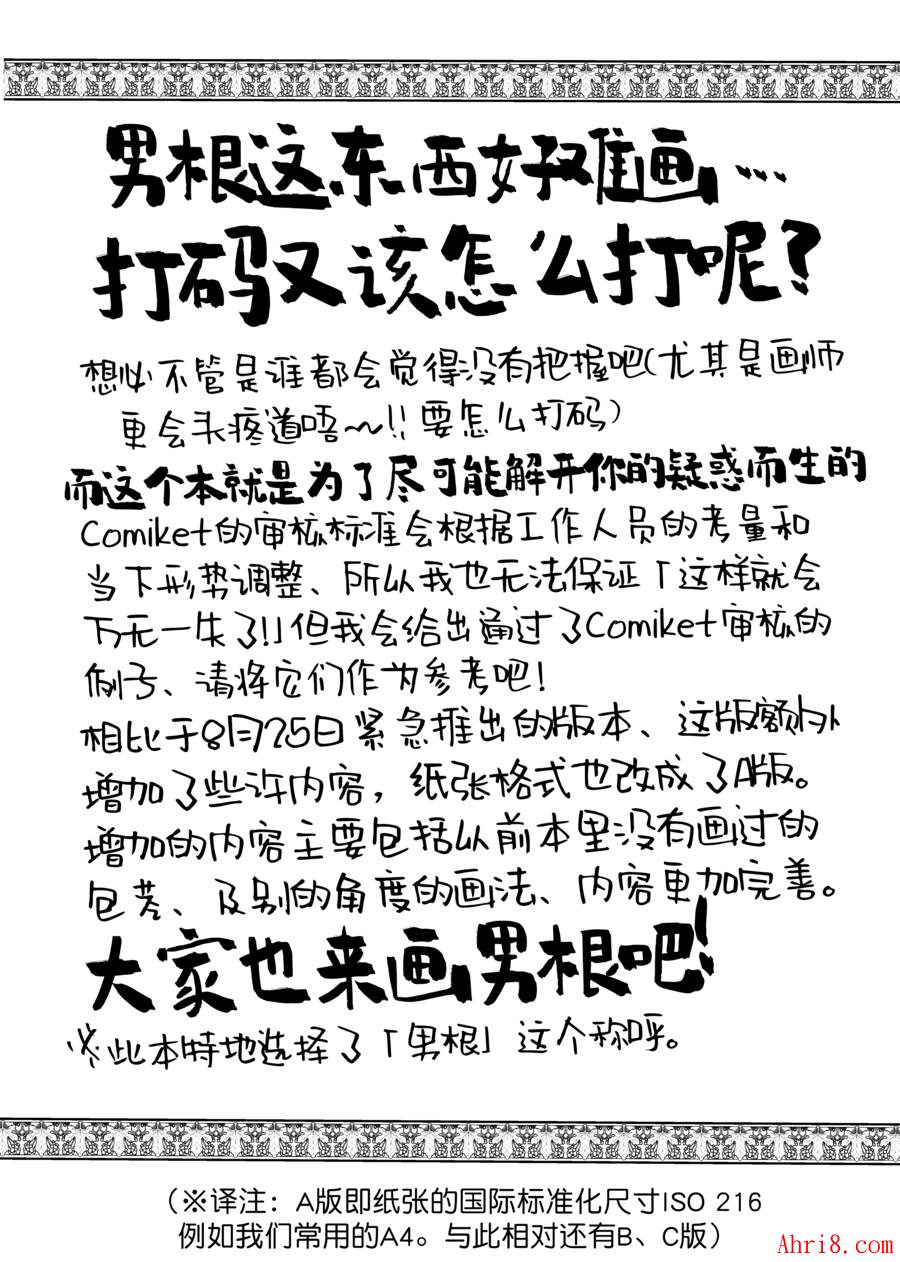 男根这东西好难画…
打码又该怎么打呢?
想必不管是谁都会觉得没有把握吧(尤其是画师
更会头疼道唔~!!要怎么打码)
而这个本就是为了尽可能解开你的疑惑而生的
Comiket的审核标准会根据工作人员的考量和
当下形势调整、所以我也无法保证「这样就会
万无一失了!」但我会给出通过了Comiket审核的
例子、请将它们作为参考吧!
相比于8月25日紧急推出的版本、这版额外
增加了些许内容，纸张格式也改成了A版。
增加的内容主要包括以前本里没有画过的
包茎、及别的角度的画法、内容更加完善。
大家也来画男根吧!
※此本特地选择了「男根」这个称呼。
（※译注：A版即纸张的国际标准化尺寸ISO 216
例如我们常用的A4。与此相对还有B、C版）
Ahri8.com